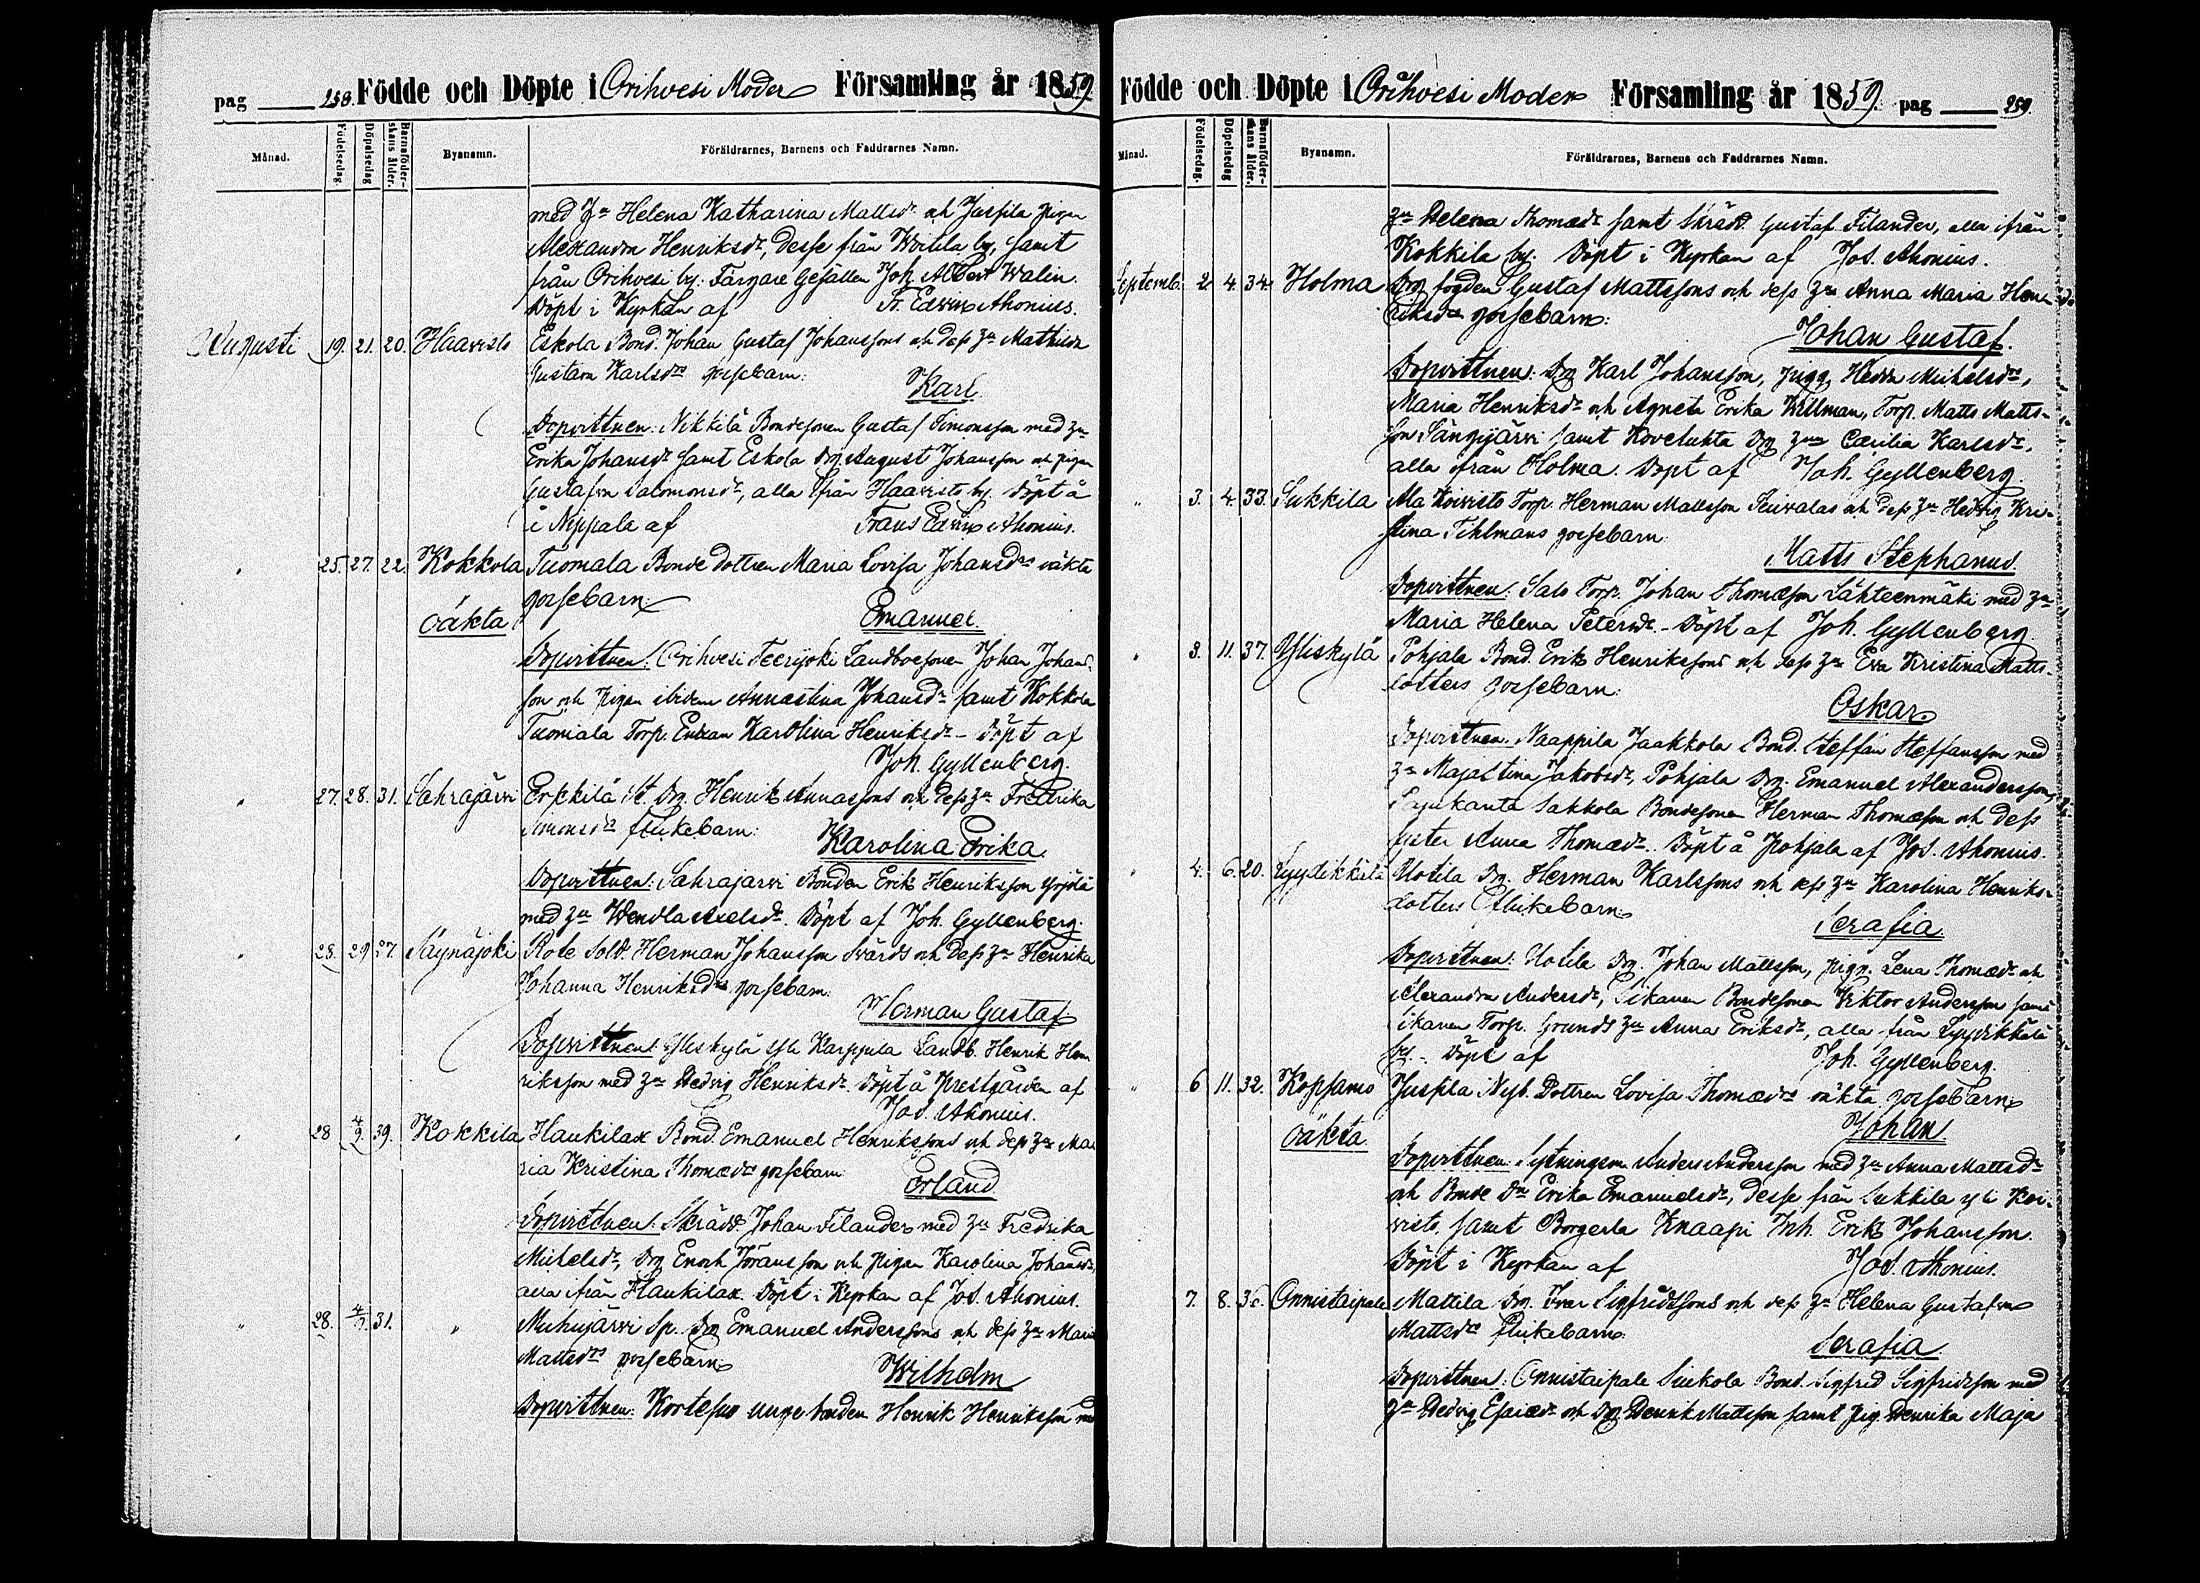 pag 258. Födde och Döpte i Orihvesi Moder Församling år 1859
Månad. Födelsedag Döpelsedag Barnaföderskans ålder. Byanamn. Föräldrarnes, Barnens och Faddrarnes Namn.
med Hu Helena Katharina Mattsdr och Juspila pigan
Alexandra Henriksdr, desse från Woitila by, samt
från Orihvesi by. Färgare Gesällen Joh. Albert Walin.
Döpt i Kyrkan af Fr. Edvin Ahonius.
Augusti 19. 21. 20. Haavisto Eskola Bond. Johan Gustaf Johanssons och dess Hu Mathilda
Gustava Karlsdrs gossebarn:
Karl
Dopvittnen: Nikkilä Bondesonen Gustaf Simonsson med Hu
Erika Johansdr samt Eskola Drg August Johansson och pigan
Gustafva Salomonsdr, alla ifrån Haavisto by. Döpt å
i Nappala af Frans Edvin Ahonius.
" 25. 27. 22. Kokkola Tuomala Bonde dottren Maria Lovisa Johansdrs oäkta
oäkta gossebarn:
Emanuel
Dopvittnen: Orihvesi Teerijoki Landboesonen Johan Johans-
son och pigan ibidem Annastina Johansdr samt Kokkola
Tuomala Torp. Enkan Karolina Henriksdr - Döpt af
Joh. Gyllenberg.
" 27. 28. 31. Sahrajärvi Erkkilä St. Drg. Henrik Annassons och dess Hu Fredrika
Simonsdrs flickebarn:
Karolina Erika
Dopvittnen: Sahrajärvi Bonden Erik Henriksson Yrjölä
med Hu Wendla Axelsdr. Döpt af Joh. Gyllenberg.
" 28. 29 27. Säynäjoki Rote Sold. Herman Johansson Svärds och dess Hu Henrika
Johanna Henriksdrs gossebarn:
Herman Gustaf
Dopvittnen: Yliskylä Yli Karppila Landb. Henrik Hen
riksson med Hu Hedvig Henriksdr. Döpt å Prestgården af
Jos. Ahonius.
" 28 4/9. 39. Kokkila Haukilax Bond. Emanuel Henrikssons och dess Hu Ma
ria Kristina Thomædrs gossebarn
Erland
Dopvittnen: Skrädd. Johan Filander med Hu Fredrika
Michelsdr, Drg Enoch Jöransson och pigan Karolina Johansdr,
alla ifrån Haukilax. Döpt i Kyrkan af Jos. Ahonius.
" 28. 4/9. 31. " Muhujärvi Sp. Drg Emanuel Anderssons och dess Hu Maria
Mattsdrs gossebarn:
Wilhelm
Dopvittnen: Kortesuo unge bonden Henrik Henriksson med
Födde och Döpte i Orihvesi Moder Församling år 1859. pag 259.
Månad. Födelsedag. Döpelsedag Barnaföderskans ålder. Byanamn. Föräldrarnes, Barnens och Faddrarnes Namn.
Hu Helena Thomædr samt Skrädd. Gustaf Filander, alla ifrån
Kokkila by. Döpt i Kyrkan af Jos. Ahonius.
Septemb. 2 4 34 Holma Drg fogden Gustaf Mattssons och dess Hu Anna Maria Hen-
riksdrs gossebarn:
Johan Gustaf.
Dopvittnen: Drg Karl Johansson, pigg. Hedda Michelsdr,
Maria Henriksdr och Agneta Erika Willman, Torp. Matts Matts-
son Sängijärvi samt Koveluhta Drg Hu Cæcilia Karlsdr,
alla ifrån Holma. Döpt af Joh. Gyllenberg.
" 3. 4. 33. Sukkila Ala Koivisto Torp. Herman Mattsson Teivalas och dess Hu Hedvig Kri-
stina Tihlmans gossebarn:
Matts Stephanus
Dopvittnen: Salo Torp. Johan Thomæson Lähteenmäki med Hu
Maria Helena Petersdr. - Döpt af Joh. Gyllenberg.
" 3. 11. 37. Yliskylä Pohjala Bond. Erik Henrikssons och dess Hu Eva Kristina Matts-
dotters gossebarn:
Oskar
Dopvittnen: Naappila Jaakkola Bond. Steffan Steffansson med
Hu Majastina Jakobsdr, Pohjala Drg. Emanuel Alexandersson,
Sakkola Bondesonen Herman Thomæson och dess
syster Anna Thomædr. Döpt å Pohjala af Jos. Ahonius.
" 4. 6. 20. Lyydikkälä Uotila Drg. Herman Karlssons och dess Hu Karolina Henriks-
dotters flickebarn:
Serafia
Dopvittnen: Uotila Drg. Johan Mattsson, pign. Lena Thomædr och
Alexandra Andersdr, Sikanen Bondesonen Wiktor Andersson samt
Sikanen Torp. Grunds Hu Anna Eriksdr, alla från Lyydikkälä
by. - Döpt af Joh. Gyllenberg.
" 6 11. 32. Kopsamo Juspila Nyb. Dottren Lovisa Thomædrs oäkta gossebarn
oäkta
Johan
Dopvittnen: Sytningsm. Anders Andersson med Hu Anna Mattsdr
och Bonde Dn Erika Emanuelsdr, desse från Sukkila Yli Koi-
visto, samt Borgerla Knaapi Inh. Erik Johansson.
Döpt i Kyrkan af Jos. Ahonius.
7. 8. Onnistaipale Mattila Drg. Ivar Sigfridssons och dess Hu Helena Gustafva
Mattsdrs flickebarn:
Serafia
Dopvittnen: Onnistaipale Siekola Bond. Sigfrid Sigfridsson med
Hu Hedvig Esaiædr och Drg. Henrik Mattsson samt pig. Henrika Maja